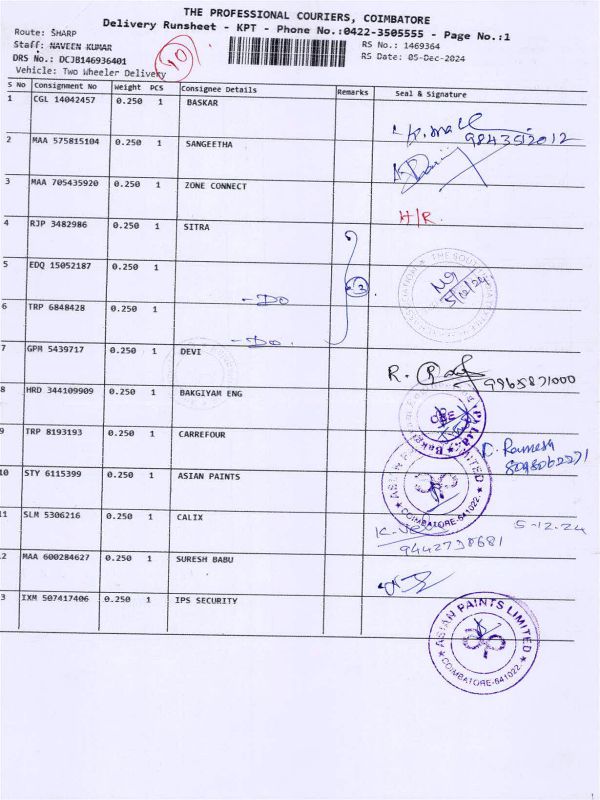 THE PROFESSIONAL COURIERS, COIMBATORE
Delivery Runsheet - KPT - Phone No.:0422-3505555 - Page No.:1
Route: SHARP
Staff: NAVEEN KUMAR
DRS No.: DCJB146936401
Vehicle: Two Wheeler Delivery
RS No.: 1469364
RS Date: 05-Dec-2024
S No Consignment No Weight PCS Consignee Details Remarks Seal & Signature
1 CGL 14042457 0.250 1 BASKAR
9843512012
2 MAA 575815104 0.250 1 SANGEETHA
3 MAA 705435920 0.250 1 ZONE CONNECT H/R.
4 RJP 3482986 0.250 1 SITRA
5 EDQ 15052187 0.250 1 -Do
3
5/12/24
6 TRP 6848428 0.250 1 -Do.
7 GPM 5439717 0.250 1 DEVI
R. 9965871000
8 HRD 344109909 0.250 1 BAKGIYAM ENG
CBE
9 TRP 8193193 0.250 1 CARREFOUR
D. Ramesh
10 STY 6115399 0.250 1 ASIAN PAINTS
COIMBATORE-641022
11 SLM 5306216 0.250 1 CALIX
5-12-24
9442738681
12 MAA 600284627 0.250 1 SURESH BABU
3 IXM 507417406 0.250 1 IPS SECURITY
ASIAN PAINTS LIMITED
COIMBATORE-641022